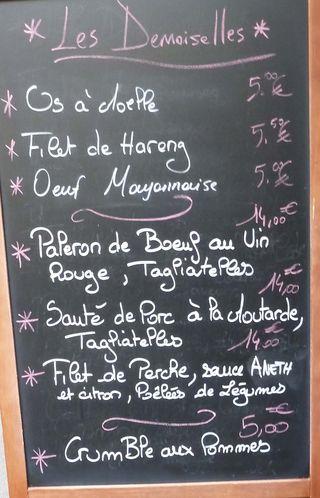 * Les Demoiselles *
* Os à Moelle 5.00 €
* Filet de Hareng 5.50 €
* Oeuf Mayonnaise 5.00 €
14,00 €
* Paleron de Boeuf au Vin
Rouge, Tagliatelles
14,00 €
* Sauté de Porc à la Moutarde,
Tagliatelles 14.00 €
* Filet de Perche, sauce ANETH
et citron, Poêlés de Légumes
5,00 €
* Crumble aux Pommes